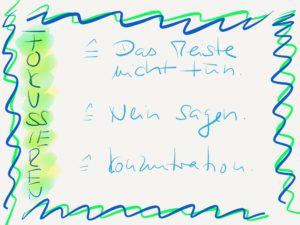 FOKUSSIEREN
≙ Das Meiste
nicht tun.
≙ Nein sagen.
≙ Konzentration.